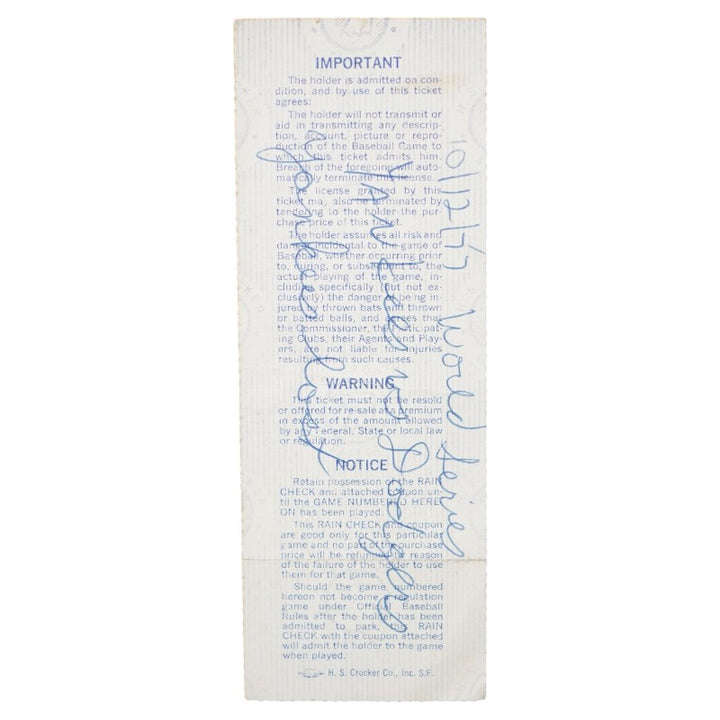 IMPORTANT
The holder is admitted on con-
dition, and by use of this ticket
agrees:
The holder will not transmit or
aid in transmitting any descrip-
tion, account, picture or repro-
duction of the Baseball Game to
which this ticket admits him.
Breach of the foregoing will auto-
matically terminate this license.
The license granted by this
ticket may also be terminated by
tendering to the holder the pur-
chase price of this ticket.
The holder assumes all risk and
danger incidental to the game of
Baseball, whether occurring prior
to, during, or subsequent to, the
actual playing of the game, in-
cluding specifically (but not ex-
clusively) the danger of being in-
jured by thrown bats and thrown
or batted balls, and agrees that
the Commissioner, the Participat-
ing Clubs, their Agents and Play-
ers, are not liable for injuries
resulting from such causes.
WARNING
This ticket must not be resold
or offered for re-sale at a premium
in excess of the amount allowed
by any Federal, State or local law
or regulation.
NOTICE
Retain possession of the RAIN
CHECK and attached coupon un-
til the GAME NUMBERED HERE
ON has been played.
This RAIN CHECK and coupon
are good only for this particular
game and no part of the purchase
price will be refunded by reason
of the failure of the holder to use
them for that game.
Should the game numbered
hereon not become a regulation
game under Official Baseball
Rules after the holder has been
admitted to park, this RAIN
CHECK with the coupon attached
will admit the holder to the game
when played.
H. S. Crocker Co., Inc. S.F.
10/12/77 World Series
Yankees vs Dodgers
Yankees lost